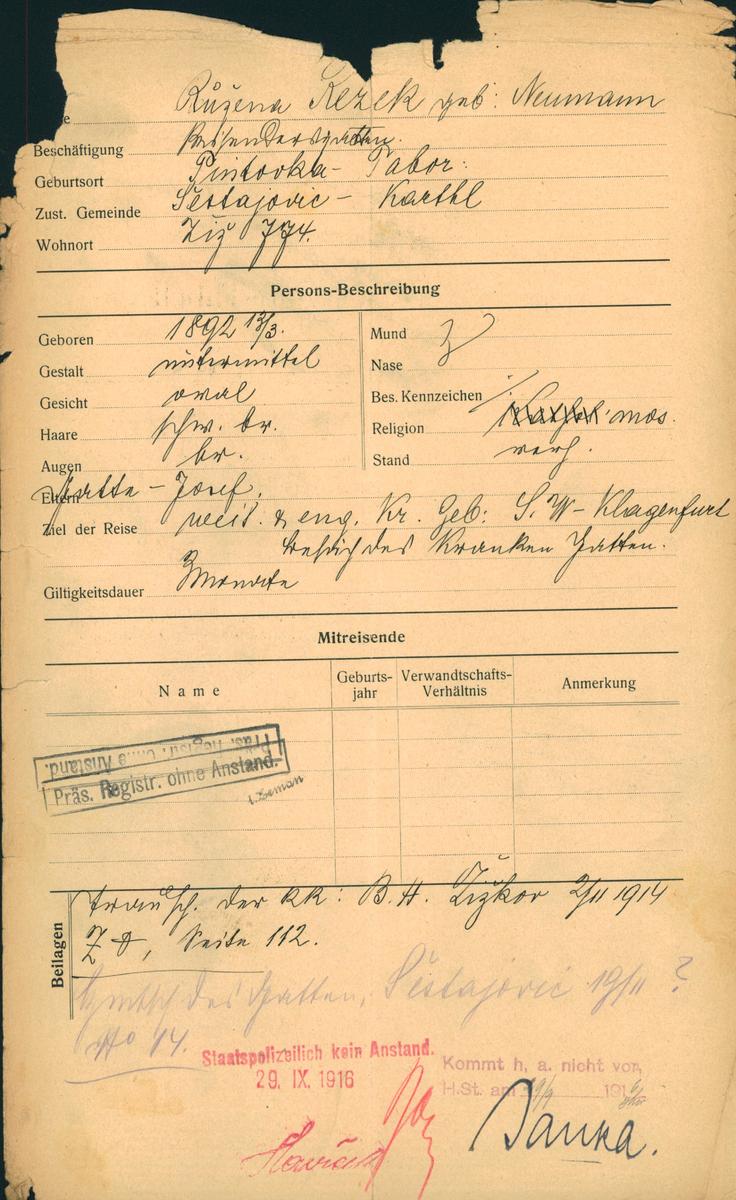 Růžena Rezek geb: Neumann
Beschäftigung
Geburtsort Pintovka - Tabor.
Zust. Gemeinde Šestajovic - Karthl
Wohnort Žiž 774.
Persons-Beschreibung
Geboren 1892 13/3.
Gestalt untermittel
Gesicht oval
Haare schw. br.
Augen br.
Mund
Nase
Bes. Kennzeichen
Religion mos.
Stand verh.
Eltern Gatte - Josef.
Ziel der Reise weit. & eng. Kr. Geb: S. W - Klagenfurt
Besuch des Kranken Gatten.
Giltigkeitsdauer 3 Monate
Mitreisende
Name
Geburts-
jahr
Verwandtschafts-
Verhältnis
Anmerkung
Präs. Registr. ohne Anstand.
Präs. Registr. ohne Anstand.
Beilagen
Trausch. der kk: B. H. Žižkov 2/11 1914
Seite 112.
des Gatten, Šestajovic 19/11 ?
No 14.
Staatspolizeilich kein Anstand.
29. IX. 1916
Kommt h. a. nicht vor,
H.St. am 29/9 1916